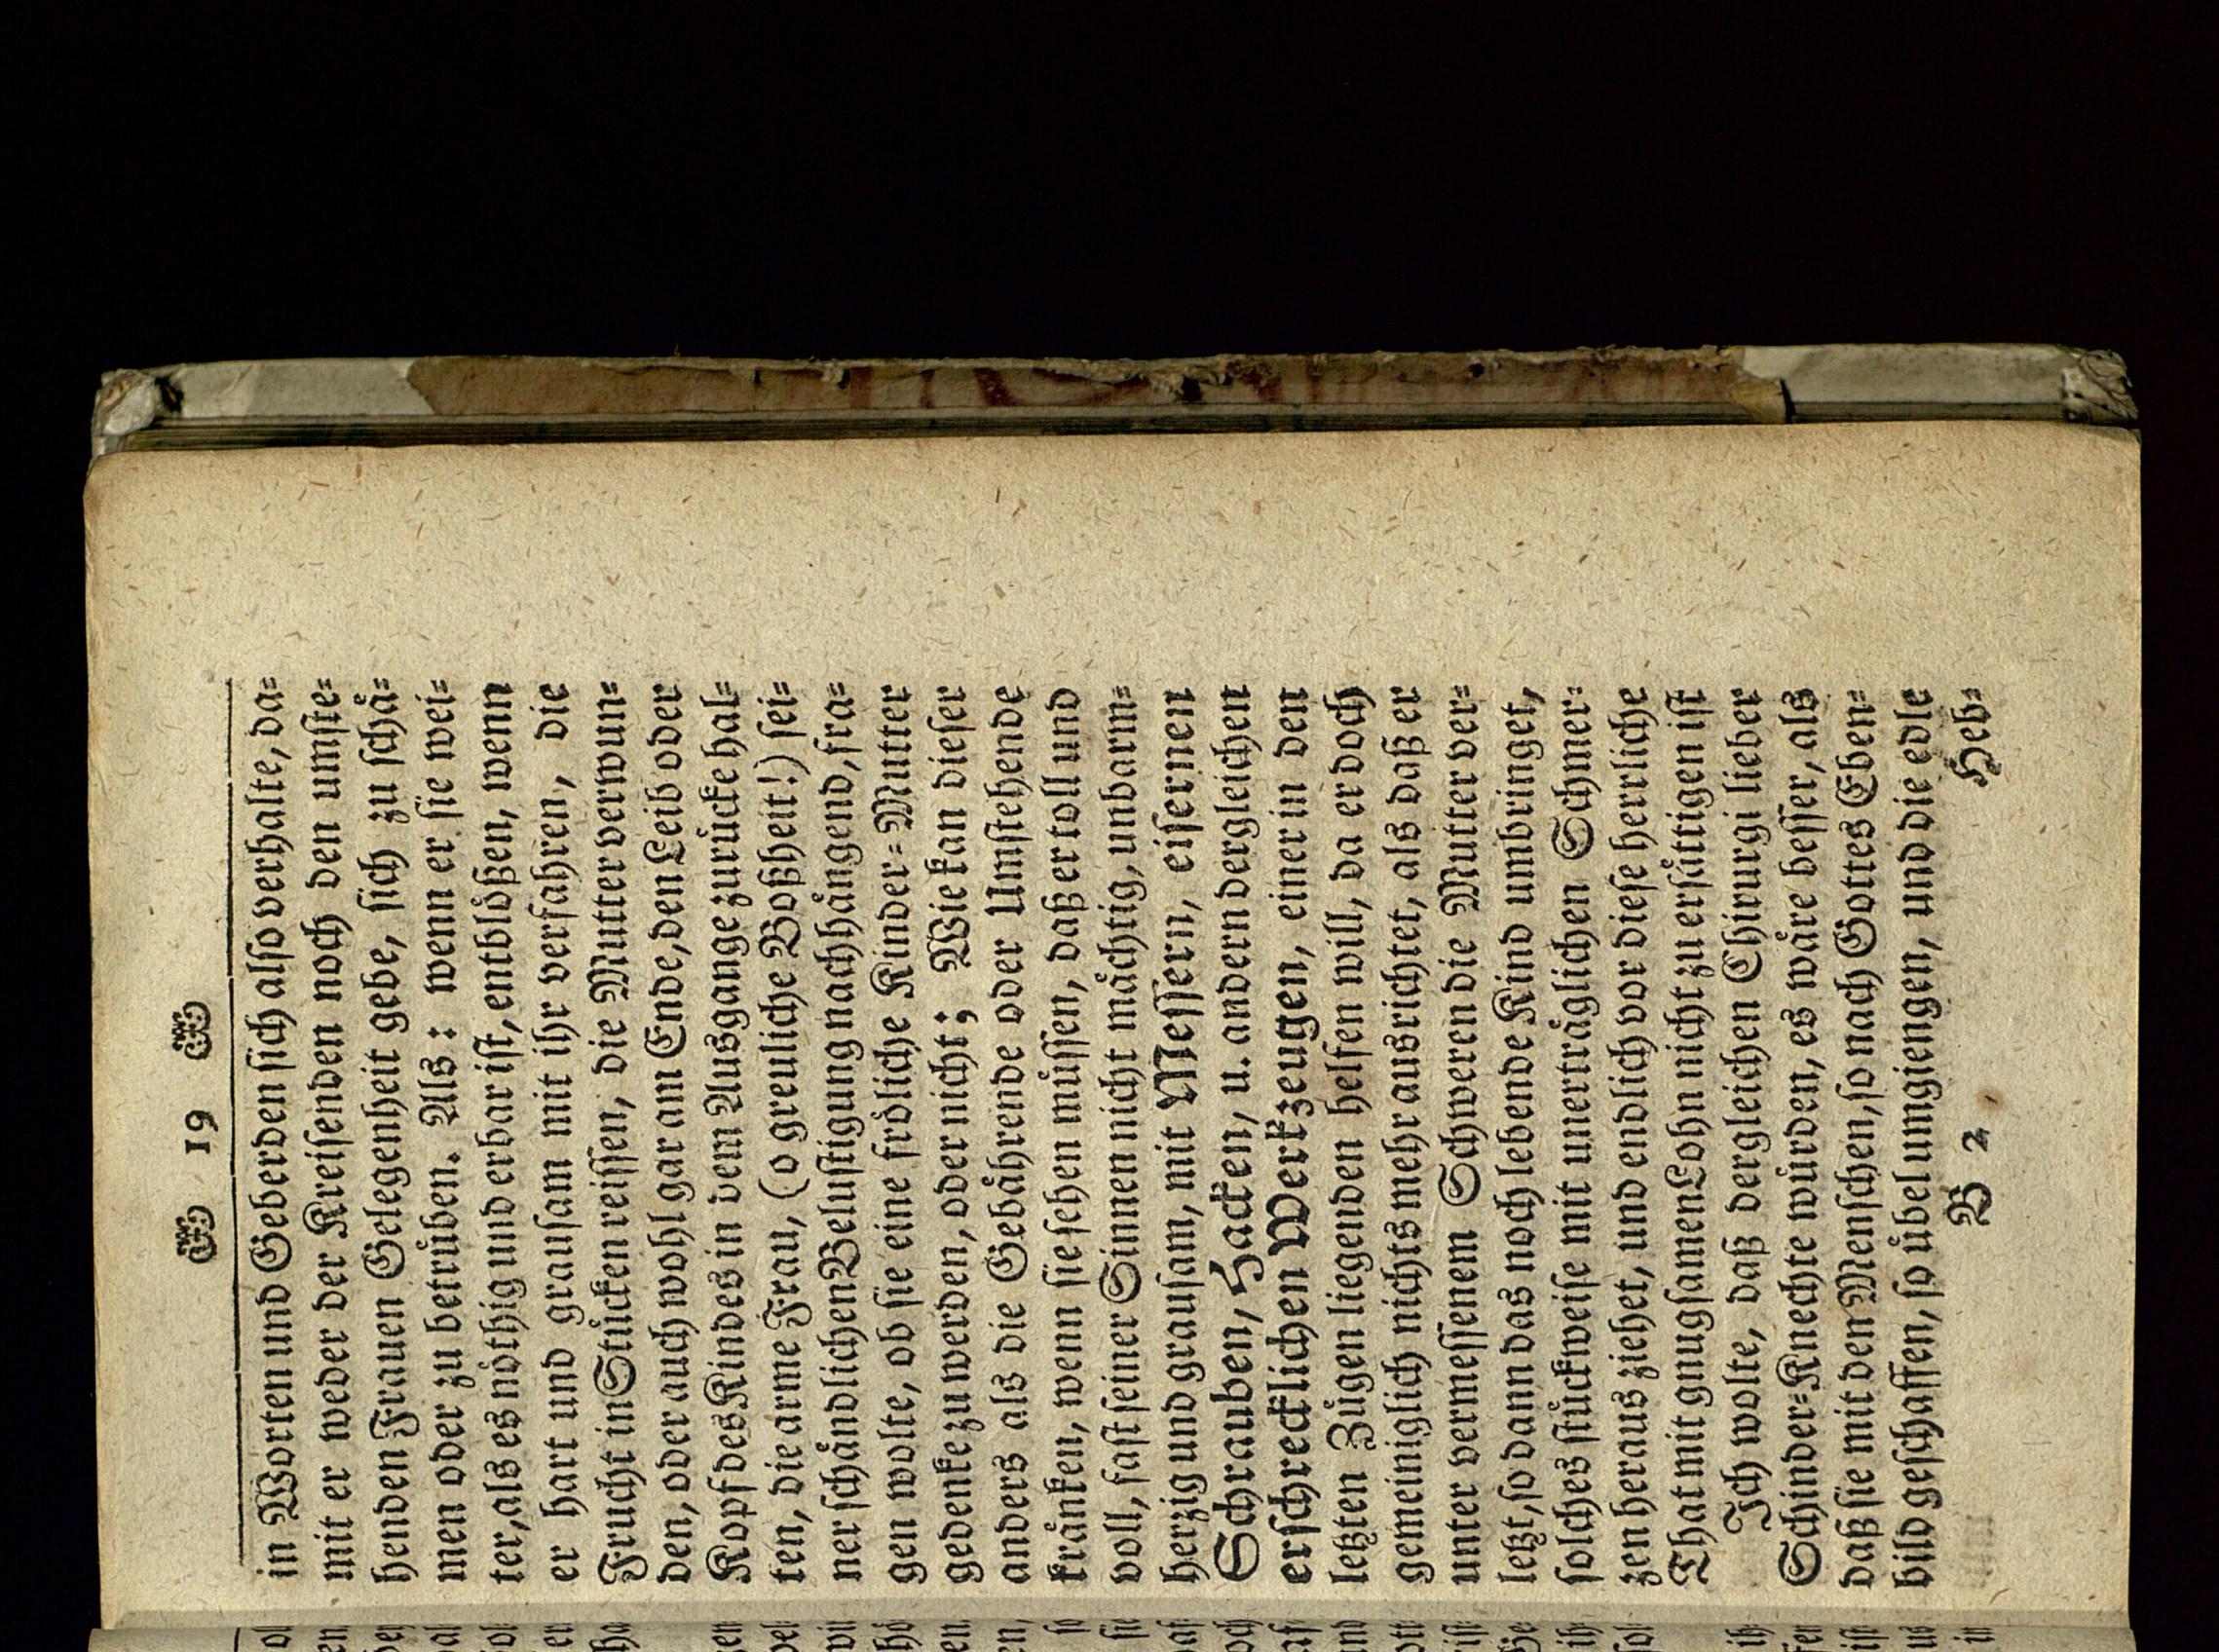 19
in Worten und Geberden sich also verhalte, da=
mit er weder der Kreisenden noch den umste=
henden Frauen Gelegenheit gebe, sich zu schaͤ=
men oder zu betruͤben. Als: wenn er sie wei=
ter, als es noͤthig und erbar ist, entbloͤßen, wenn
er hart und grausam mit ihr verfahren, die
Frucht in Stuͤcken reissen, die Mutter verwun=
den, oder auch wohl gar am Ende, den Leib oder
Kopf des Kindes in dem Ausgange zuruͤcke hal=
ten, die arme Frau, (o greuliche Boßheit!) sei=
ner schaͤndlichen Belustigung nachhaͤngend, fra=
gen wolte, ob sie eine froͤliche Kinder=Mutter
gedenke zu werden, oder nicht; Wie kan dieser
anders als die Gebaͤhrende oder Umstehende
kraͤnken, wenn sie sehen muͤssen, daß er toll und
voll, fast seiner Sinnen nicht maͤchtig, unbarm=
herzig und grausam, mit Messern, eisernen
Schrauben, Hacken, u. andern dergleichen
erschrecklichen Werkzeugen, einer in den
letzten Zuͤgen liegenden helfen will, da er doch
gemeiniglich nichts mehr ausrichtet, als daß er
unter vermessenem Schweren die Mutter ver=
letzt, so dann das noch lebende Kind umbringet,
solches stuͤckweise mit unertraͤglichen Schmer=
zen heraus ziehet, und endlich vor diese herrliche
That mit gnugsamen Lohn nicht zu ersaͤttigen ist
Ich wolte, daß dergleichen Chirurgi lieber
Schinder=Knechte wuͤrden, es waͤre besser, als
daß sie mit den Menschen, so nach Gottes Eben=
bild geschaffen, so uͤbel umgiengen, und die edle
B 2 Heb=